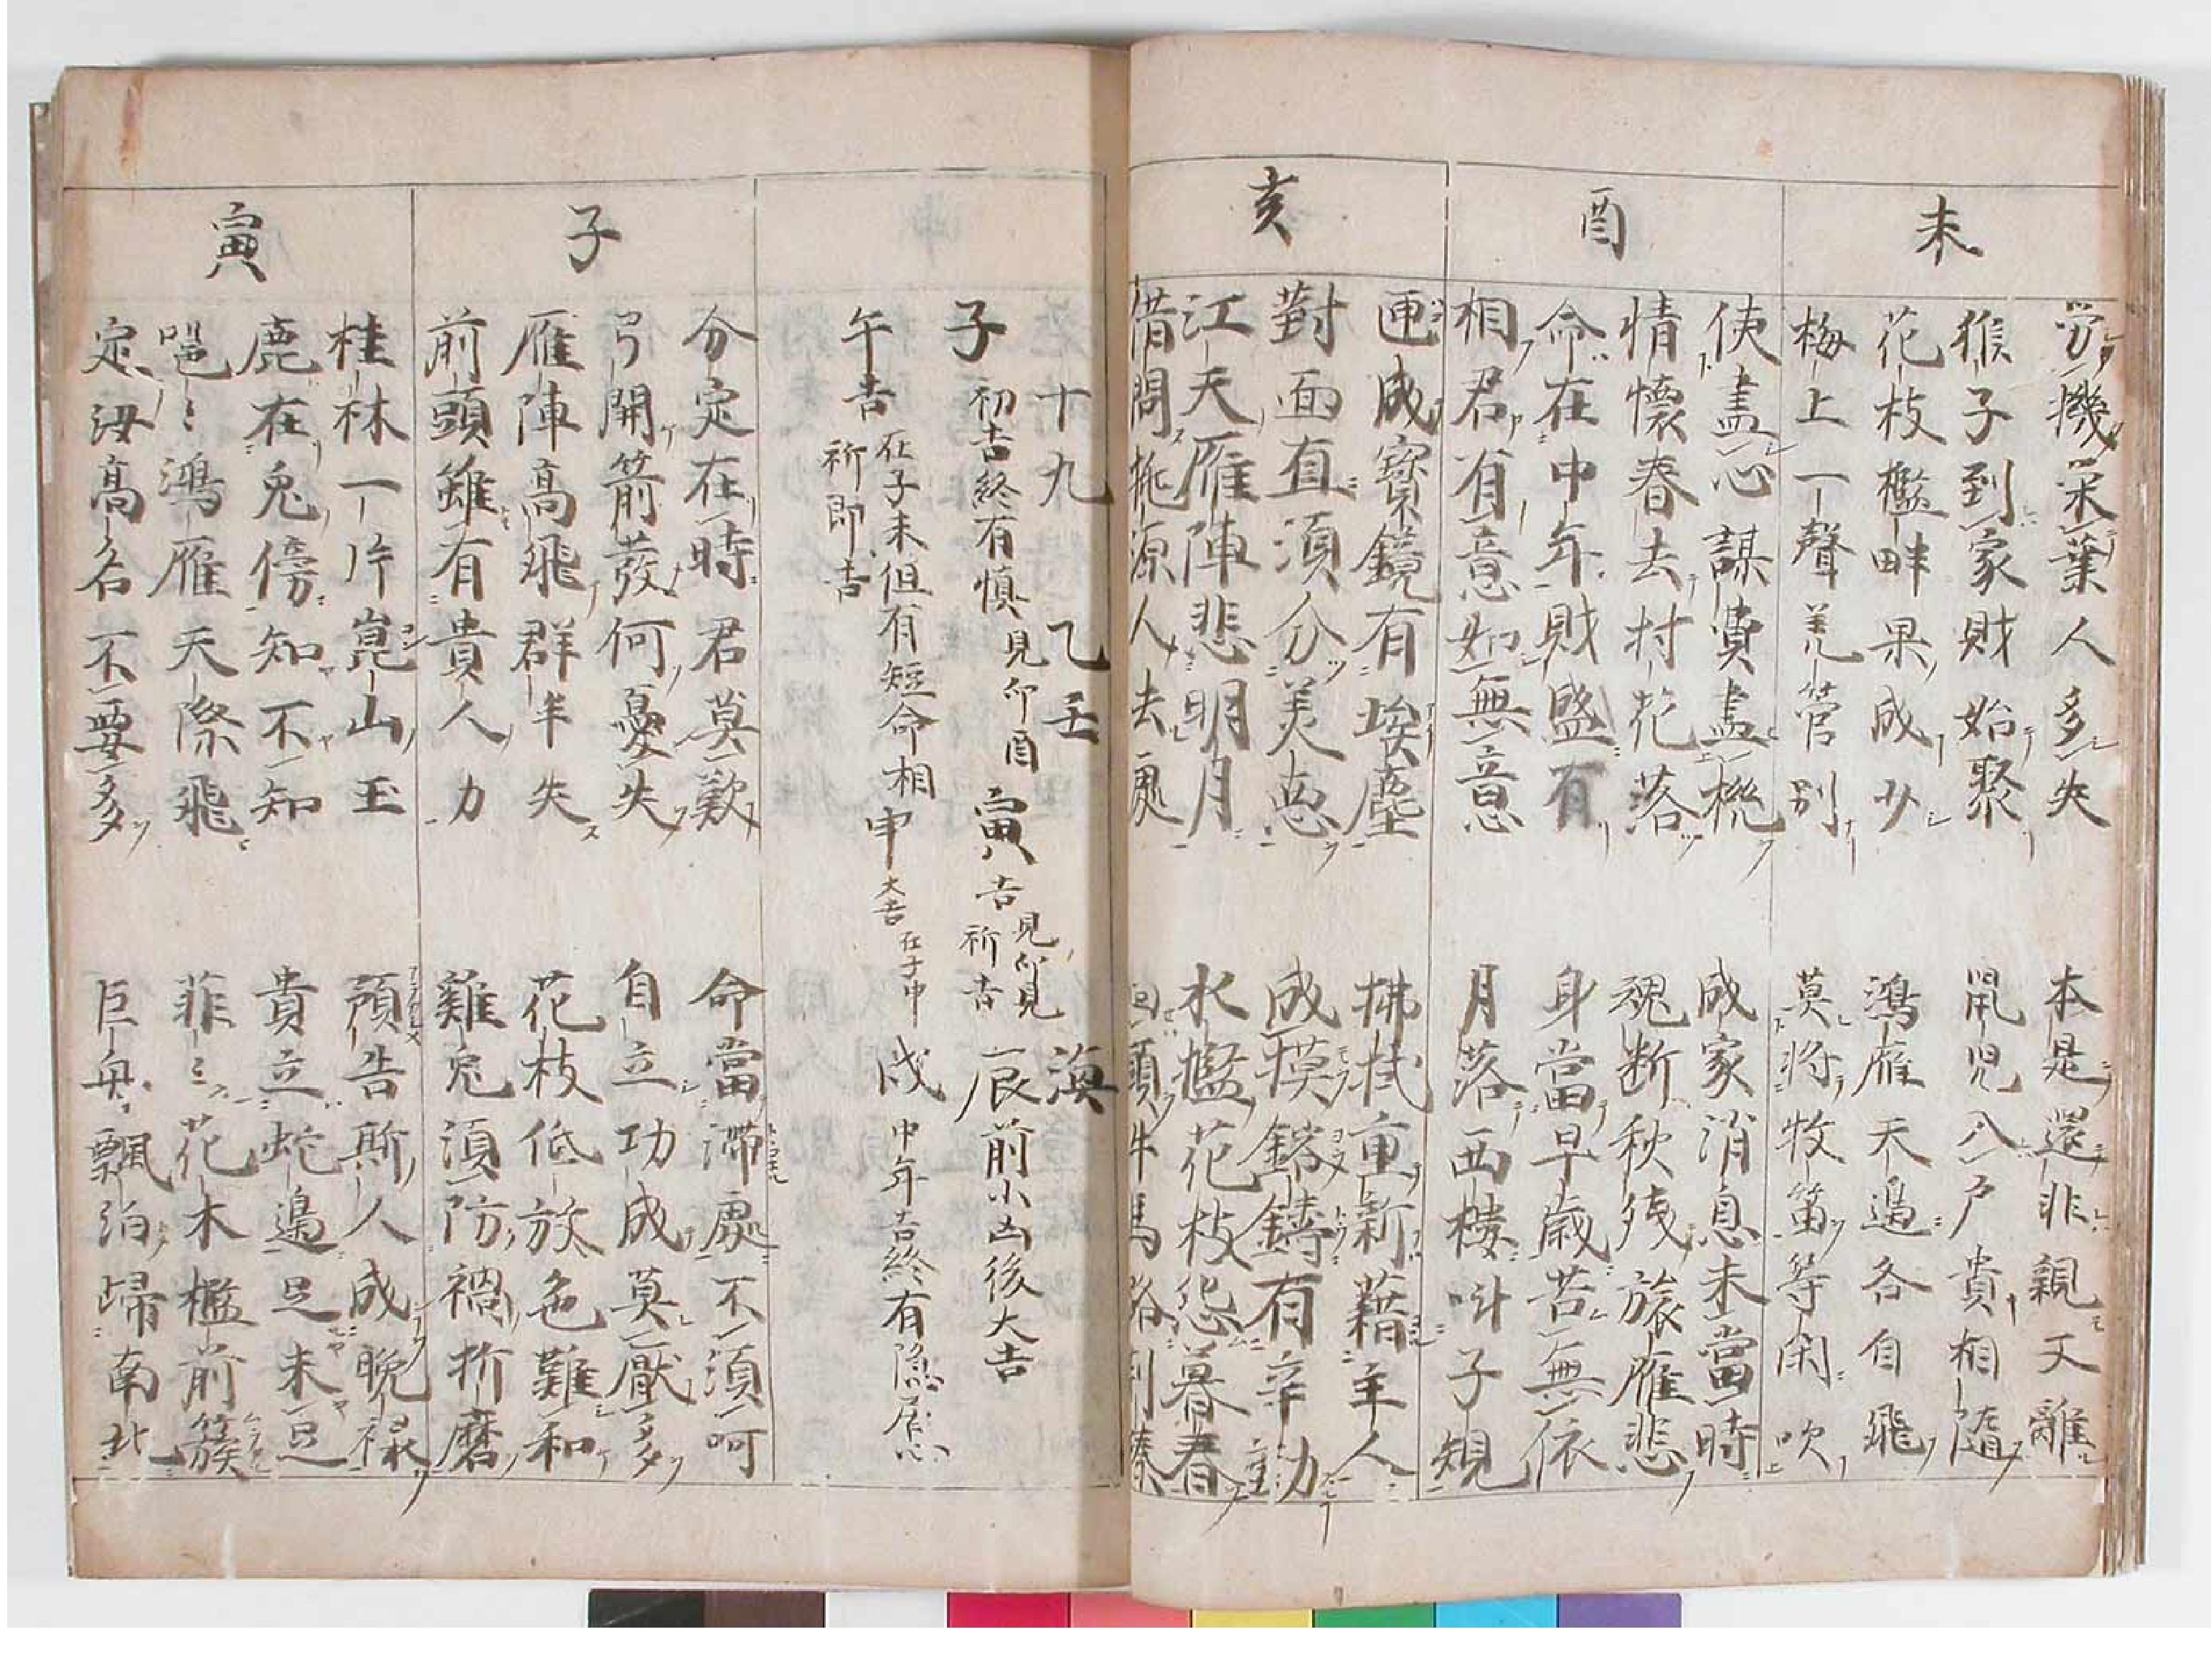 未
労機采葉人多失　本是還非親又離
猴子到家財始聚　鼠児入戸貴相随
花枝檻畔果成少　鴻雁天邉各自飛
梅上一聲羌管別　莫将牧笛等閑吹
酉
使盡心謀費盡機　成家消息未當時
情懷春去村花落　魂断秋残旅雁悲
命在中年財盛有　身當早歳苦無依
相君有意如無意　月落西楼叫子規
亥
匣成寳鏡有埃塵　拂拭重新藉主人
對面直須分美悪　成模鎔鑄有辛勤
江天雁陣悲明月　水檻花枝怨暮春
借問桃源人去處　回頭牛馬路到秦
十九　乙壬　海
子 初吉終有慎 見卯酉 寅 吉 見卯見 祈吉 辰 前小凶後大吉
午 吉 在子未但有短命相 祈即吉 申 大吉 在子申 戌 中年吉終有隐居心
子
分定在時君莫歎　命當滞處不須呵
弓開箭發何憂失　自立功成莫厭多
雁陣高飛群半失　花枝低放色難和
前頭雖有貴人力　雞兎須防禍折磨
寅
桂林一片崑山玉　預告斯人成晩禄
鹿在兎傍知不知　貴立蛇邉足未足
嗈〻鴻雁天際飛　菲〻花木檻前簇
定汝高名不要多　巨舟飄泊歸南北